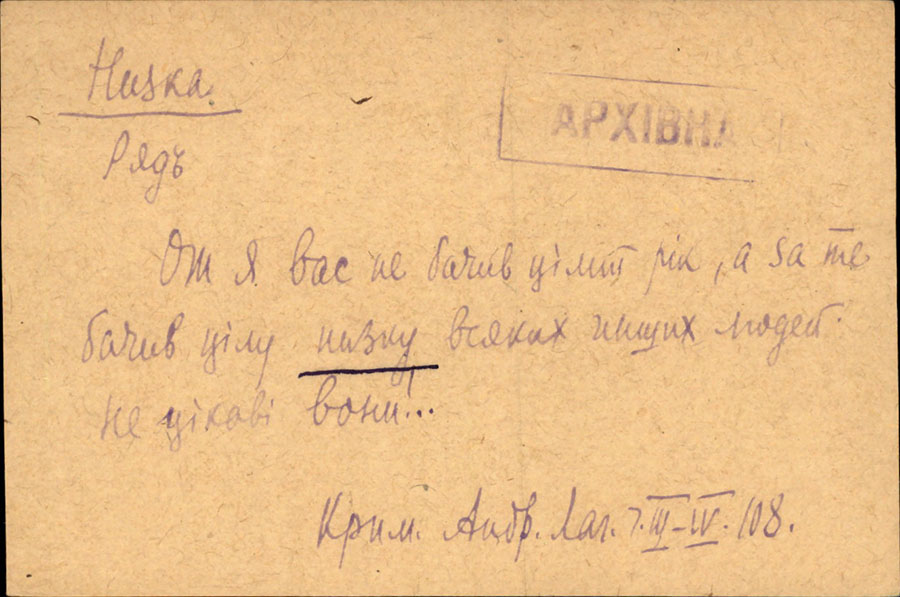 Низка.
АРХІВНА
Рядъ
От я вас не бачив цілий рік, а за те
бачив цілу низку всяких инших людей.
Не цікаві вони!...
Крим. Андр. Лаг. ч. III–IV. 108.